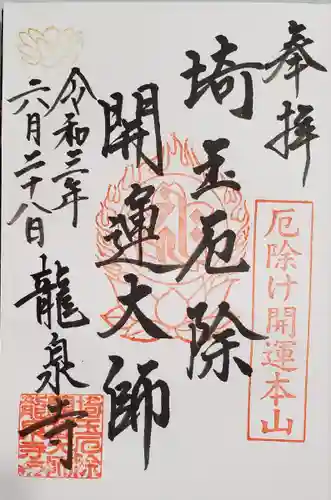 奉拝
厄除け開運本山
埼玉厄除
開運大師
令和三年
六月二十八日
龍泉寺
埼玉厄除
開運大師
龍泉寺